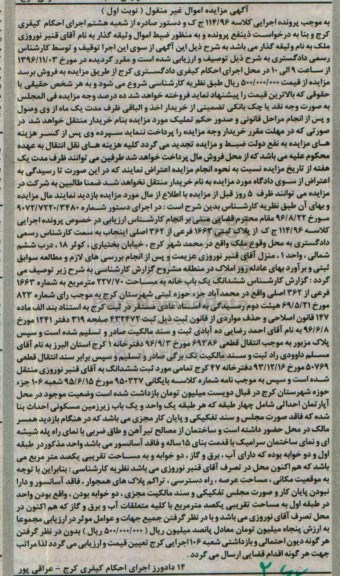 آگهی مزایده اموال غیر منقول ( نوبت اول )
به موجب پرونده اجرایی کلاسه ۱۱۴/۹۶ ج ک و دستور صادره از شعبه هشتم اجرای احکام کیفری
کرج و بنا به درخواست ذینفع پرونده و به منظور ضبط اموال وثیقه گذار به نام آقای قنبر نوروزی
ملک به نام وثیقه گذار می باشد به شرح ذیل این آگهی از سوی این اجرا توقیف و توسط کارشناس
رسمی دادگستری به شرح ذیل توصیف و ارزیابی شده است و مقرر گردیده در مورخ ۱۳۹۶/۱۱/۰۳
از ساعت ۹ الی ۱۰ در محل اجرای احکام کیفری دادگستری کرج از طریق مزایده به فروش برسد
مزایده از قیمت ۵۰۰/۰۰۰/۰۰۰ ریال طبق نظریه کارشناسی شروع می شود و به هر شخص حقیقی یا
حقوقی که بالاترین قیمت را پیشنهاد نماید فروخته خواهد شد ده درصد وجه مزایده فی المجلس
به صورت وجه نقد یا چک بانکی تضمینی از خریدار اخذ و الباقی ظرف مدت یک ماه از وی وصول
و پس از انجام مراحل قانونی و صدور حکم تملیک مورد مزایده بنام خریدار منتقل خواهد شد. در
صورتی که در مهلت مقرر خریدار وجه مزایده را پرداخت ننماید سپرده وی پس از کسر هزینه
های مزایده به نفع دولت ضبط و مزایده تجدید می گردد کلیه هزینه های نقل انتقال به عهده
محکوم علیه می باشد که از محل فروش مال پرداخت خواهد شد طرفین می توانند ظرف مدت یک
هفته از تاریخ مزایده نسبت به نحوه انجام مزایده اعتراض نمایند که در این صورت تا رسیدگی به
اعتراض از سوی دادگاه مورد مزایده به نام خریدار منتقل نخواهد شد ضمنا طالبین به شرکت در
مزایده می توانند ظرف ۵ روز قبل از مزایده با اطلاع از مال مورد مزایده بازدید نمایند مال مزایده
و بهای آن طبق نظریه کارشناس بدین شرح است : در اجرای دستور شماره ۹۰۷۲/۷۲۲۰/۳۴۸۰
مورخ ۹۶/۸/۲۲ مقام محترم قضایی مبنی بر انجام کارشناسی ارزیابی در خصوص پرونده اجرایی
کلاسه ۱۱۴/۹۶ ج ک از پلاک ثبتی ۱۶۶۳ فرعی از ۳۶۲ اصلی اینجانب به سمت کارشناس رسمی
دادگستری به محل وقوع ملک واقع در محمد شهر کرج ، خیابان بختیاری ، کوثر ۱۸ ، درب ششم
شمالی ، واحد ۱ ، منزل آقای قنبر نوروزی عزیمت و پس از انجام بررسی های لازم و مطالعه سوابق
ثبتی و برآورد بهای عادله روز املاک در منطقه مشروح گزارش کارشناسی به شرح زیر توصیف می
گردد : گزارش کارشناسی ششدانگ یک باب خانه به مساحت ۲۳۷/۷۰ مترمربع به شماره ۱۶۶۳
فرعی از ۳۶۲ اصلی واقع در محمد آباد جزء حوزه ثبتی شهرستان کرج به موجب رای شماره ۸۲۲
مورخ ۶۹/۵/۲۱ هیئت دوم رسیدگی به اسناد عادی مستقر در ثبت کرج به استناد بند الف ماده
۱۴۷ قانون اصلاحی و حذف مواردی از قانون ثبت ذیل ثبت ۴۲۳۴۷۲ صفحه ۳۱۹ دفتر ۱۲۴۱ مورخ
۹۶/۶/۸ به نام آقای احمد رضایی ده آبادی ثبت و سند مالکیت صادر و تسلیم شده است و سپس
پلاک مزبور به موجب انتقال قطعی ۶۹۳۸۶ مورخ ۹۶/۹/۳ دفترخانه ۱ کرج استان البرز به نام آقای
مسلم داوودی راد ثبت و سند مالکیت تک برگی صادر و تسلیم و سپس برابر سند انتقال قطعی
۵۰۷۶۹ مورخ ۹۳/۱۲/۱۶ دفترخانه ۴۷ کرج تمامی مورد ثبت ششدانگ به آقای قنبر نوروزی منتقل
شده است و سپس به موجب نامه شماره کلاسه بایگانی ۹۵۰۳۲۷ مورخ ۹۵/۶/۱۵ شعبه ۱۰۶ جزء
حوزه شهرستان کرج در قبال دویست میلیون تومان بازداشت شده است وضعیت موجود در محل
آپارتمان احداثی شامل چهار طبقه که هر طبقه یک واحد و یک باب زیرزمین مسکونی احداث بنا
شده که فاقد صورت مجلس و سند تفکیکی و پایان کار مجزی می باشد که در هنگام بازدید همسر
مالک در محل حضور داشته است و ساختمان از مصالح تیر آهن و طاق ضربی با نمای راه پله شیشه
ای و نمای ساختمان سرامیک با قدمت بنای ۱۵ ساله و فاقد آسانسور می باشد واحد مذکور در طبقه
اول و دو خوابه بوده که دارای آب ، برق و گاز ، دو خوابه و به مساحت تقریبی یکصد متر مربع می
باشد که هم اکنون محل در تصرف آقای قنبر نوروزی می باشد نظریه کارشناسی : بنابراین با توجه
به موقعیت مکانی ، مساحت عرصه ، راه دسترسی ، تراکم پلاک های همجوار ، فاقد آسانسور و دارا
نبودن پایان کار و صورت مجلس تفکیکی و سند مالکیت مجزی ، دو خوابه بودن ، واقع بودن واحد
در طبقه اول به مساحت تقریبی یکصد مترمربع با کلیه متعلقات آب و برق و گاز که هم اکنون در
محل تصرف آقای نوروزی می باشد و با در نظر گرفتن جمیع جهات و عوامل موثر در ارزیابی مجموعا
به ارزش پنجاه میلیون تومان معادل پانصد میلیون ریال ( ۵۰۰/۰۰۰/۰۰۰ ریال ) بدون در نظر گرفتن
هر گونه دیون احتمالی و بازداشتی شعبه ۱۰۶ اجرایی کرج تعیین قیمت و ارزیابی می گردد لذا مراتب
جهت هر گونه اقدام قضایی ارسال می گردد .
۱۴ دادورز اجرای احکام کیفری کرج – عراقی پور